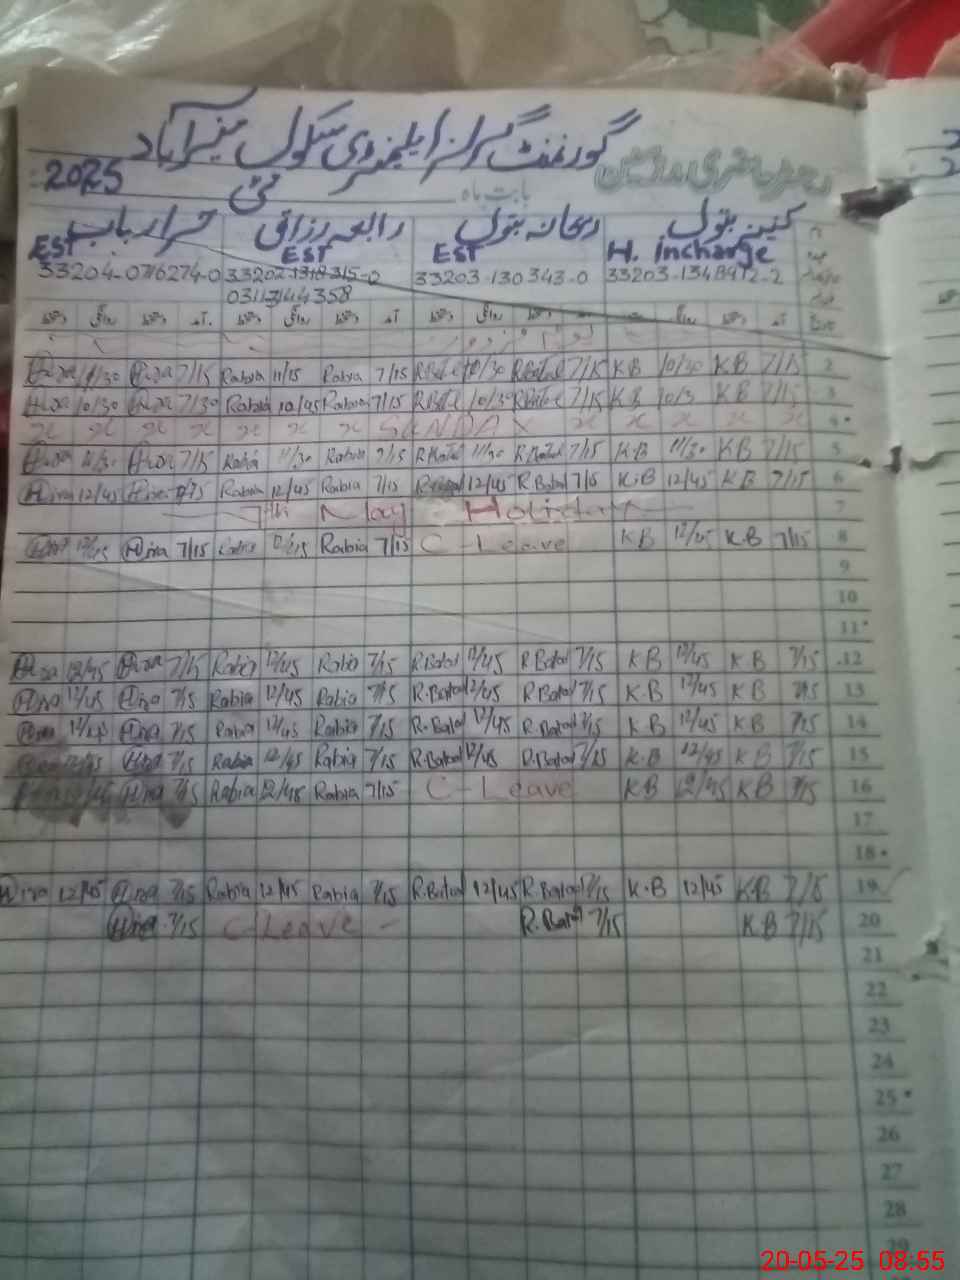 گورنمنٹ گرلز ایلیمنٹری سکول منیرآباد
2025 بابت ماہ
کنیز بتول ریحانہ بتول رابعہ رزاق حرا رباب
H. Incharge EST EST EST
33203-130343-0 33204-0716274-0
آمد دستخط روانگی دستخط آمد دستخط روانگی دستخط آمد دستخط روانگی دستخط آمد دستخط روانگی دستخط
Hira 7/15 Rabia 11/15 Rabia 7/15 10/30 7/15 KB 10/30 KB 7/15 2
Hira 10/30 Hira 7/30 Rabia 10/45 Rabia 7/15 10/30 7/15 KB KB 7/15 3
x x x x x x x SUNDAY x x x x x 4
Hira 11/30 Hira 7/15 Rabia 11/30 Rabia 7/15 11/30 7/15 K.B 11/30 KB 7/15 5
Hira 12/45 Hira 7/15 Rabia 12/45 Rabia 7/15 12/45 R.Batol 7/15 K.B 12/45 KB 7/15 6
May Holiday 7
Hira 7/15 Rabia Rabia 7/15 C-Leave KB 12/45 K.B 7/15 8
9
10
11
Hira 12/45 Hira 7/15 Rabia 12/45 Rabia 7/15 R.Batol 12/45 R.Batol 7/15 KB 12/45 KB 7/15 12
Hira 12/45 Hira 7/15 Rabia 12/45 Rabia 7/15 R.Batol 12/45 R.Batol 7/15 K.B 12/45 KB 7/15 13
Hira 12/45 Hira 7/15 Rabia 12/45 Rabia 7/15 R.Batol 12/45 R.Batol 7/15 KB 12/45 KB 7/15 14
12/45 Hira 7/15 Rabia 12/45 Rabia 7/15 R.Batol 12/45 R.Batol 7/15 K.B 12/45 KB 7/15 15
Hira 7/15 Rabia 12/45 Rabia 7/15 C-Leave KB 12/45 KB 7/15 16
17
18
Hira 12/45 Hira 7/15 Rabia 12/45 Rabia 7/15 R.Batol 12/45 R.Batol 7/15 K.B 12/45 K.B 7/15 19
Hira 7/15 C-Leave R.Batol 7/15 K.B 7/15 20
21
22
23
24
25
26
27
28
29
20-05-25 08:55